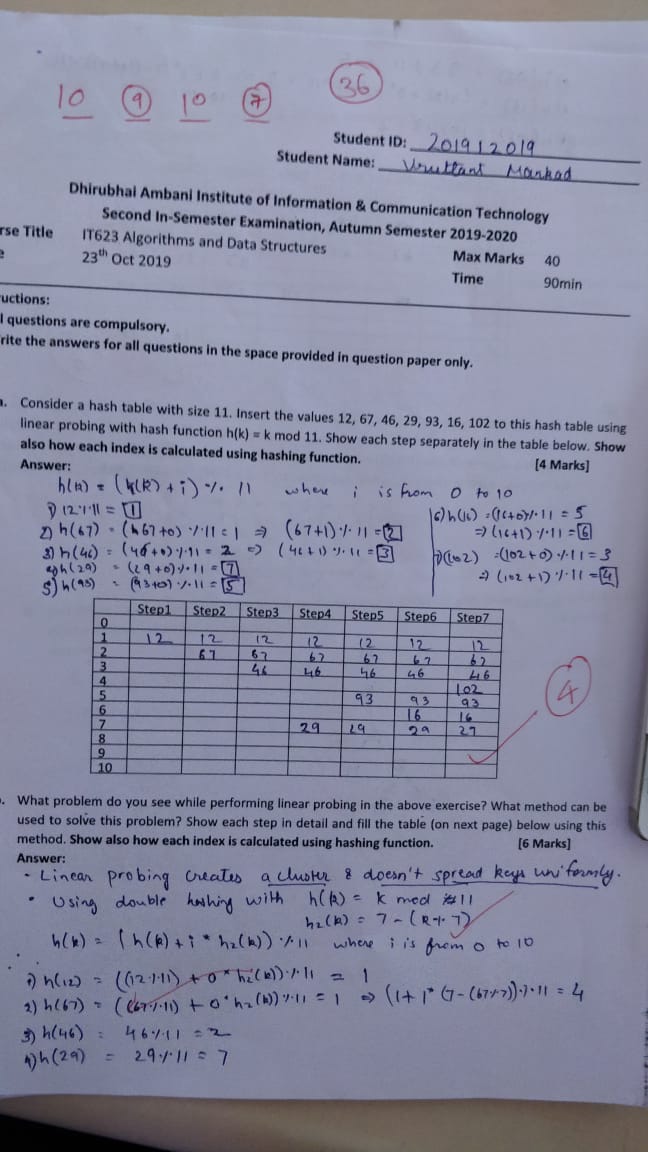 36
10 9 10 7
Student ID: 201912019
Student Name: Vruttant Mankad
Dhirubhai Ambani Institute of Information & Communication Technology
Second In-Semester Examination, Autumn Semester 2019-2020
rse Title IT623 Algorithms and Data Structures Max Marks 40
e 23th Oct 2019 Time 90min
uctions:
l questions are compulsory.
rite the answers for all questions in the space provided in question paper only.
a. Consider a hash table with size 11. Insert the values 12, 67, 46, 29, 93, 16, 102 to this hash table using
linear probing with hash function h(k) = k mod 11. Show each step separately in the table below. Show
also how each index is calculated using hashing function. [4 Marks]
Answer:
h(k) = (h(k) + i) % 11 where i is from 0 to 10
1) 12 % 11 = 1
2) h(67) = (67+0) % 11 = 1 ⇒ (67+1) % 11 = 2
3) h(46) = (46+0) % 11 = 2 ⇒ (46+1) % 11 = 3
4) h(29) = (29+0) % 11 = 7
5) h(93) = (93+0) % 11 = 5
6) h(16) = (16+0) % 11 = 5
⇒ (16+1) % 11 = 6
7) (102) = (102+0) % 11 = 3
⇒ (102+1) % 11 = 4
Step1 Step2 Step3 Step4 Step5 Step6 Step7
0
1 12 12 12 12 12 12 12
2 67 67 67 67 67 67
3 46 46 46 46 46
4 102
5 93 93 93
6 16 16
7 29 29 29 29
8
9
10
4
. What problem do you see while performing linear probing in the above exercise? What method can be
used to solve this problem? Show each step in detail and fill the table (on next page) below using this
method. Show also how each index is calculated using hashing function. [6 Marks]
Answer:
• Linear probing creates a cluster & doesn't spread keys uniformly.
• Using double hashing with h(k) = k mod 11
h2(k) = 7 - (k % 7)
h(k) = (h(k) + i * h2(k)) % 11 where i is from 0 to 10
1) h(12) = ((12 % 11) + 0 * h2(k)) % 11 = 1
2) h(67) = ((67 % 11) + 0 * h2(k)) % 11 = 1 ⇒ (1 + 1 * (7 - (67 % 7)) % 11 = 4
3) h(46) = 46 % 11 = 2
4) h(29) = 29 % 11 = 7